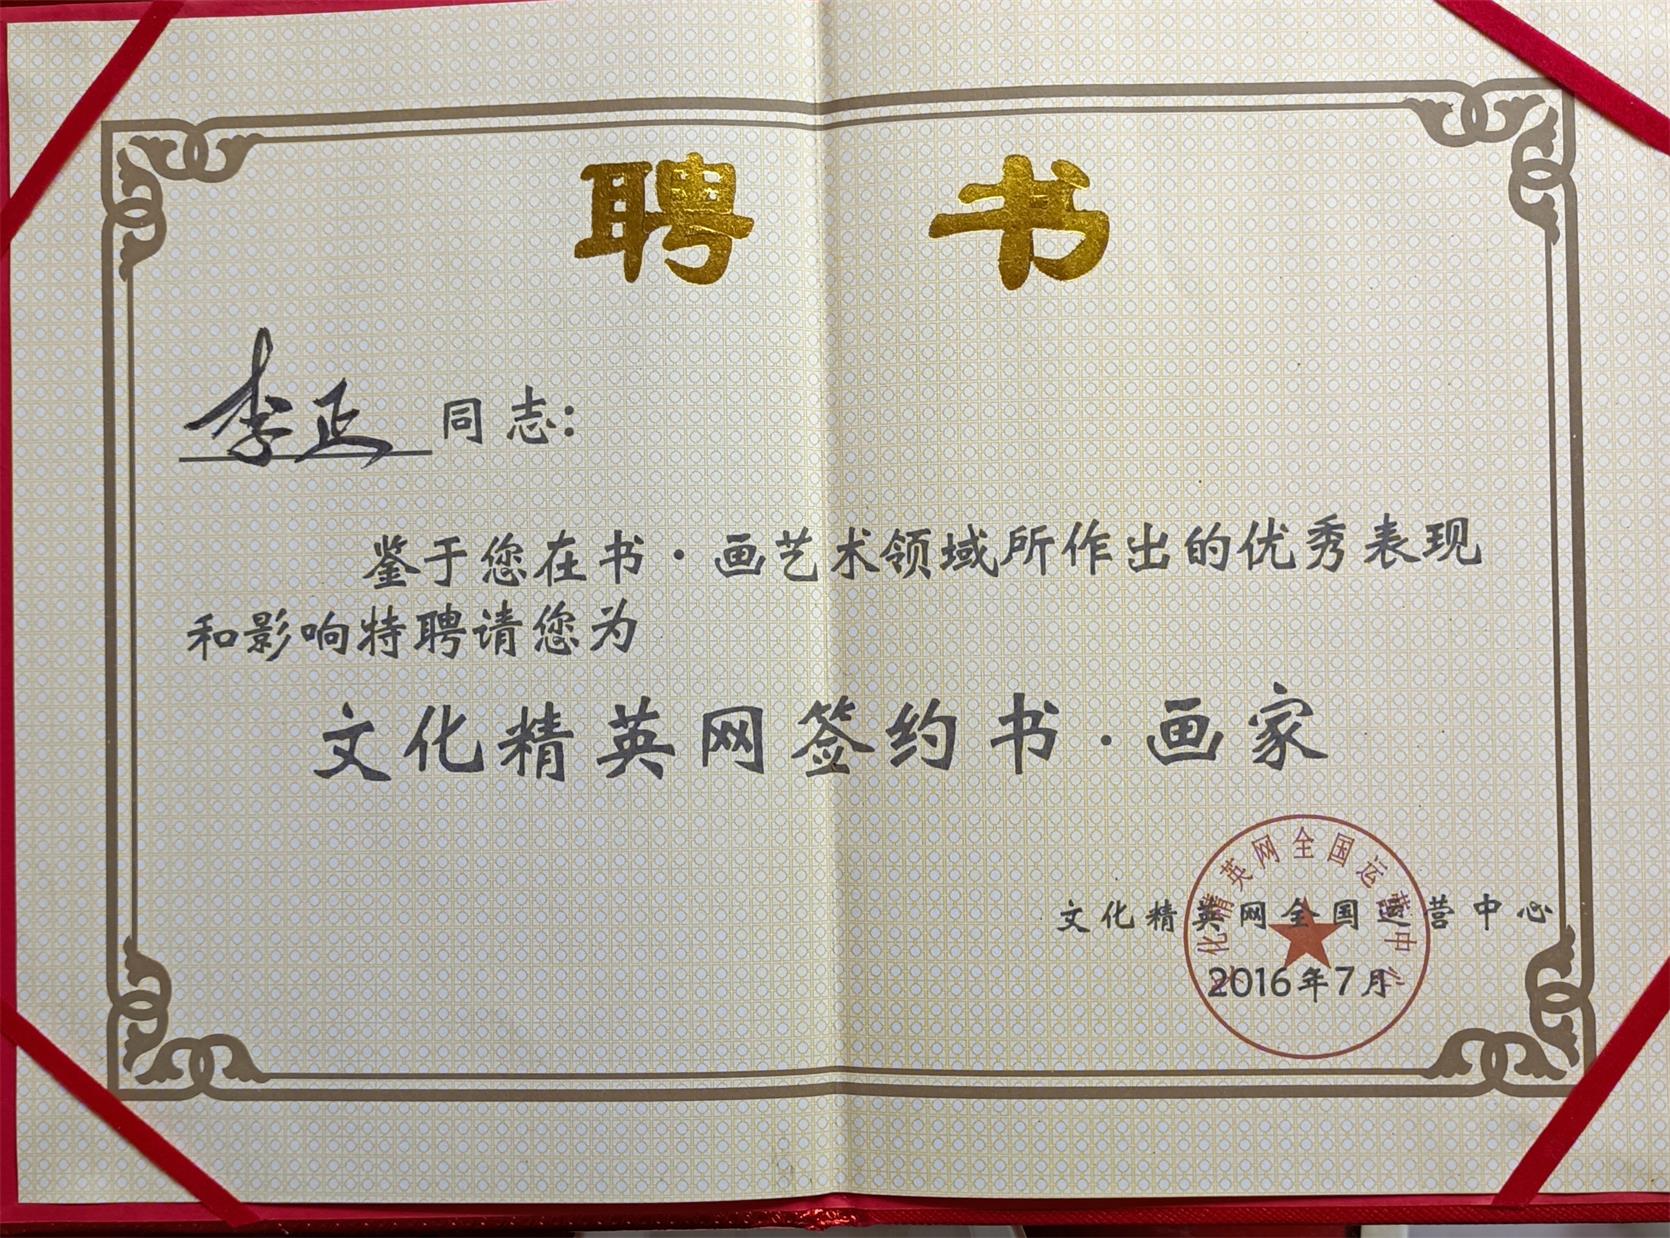 聘书
李正同志：
鉴于您在书·画艺术领域所作出的优秀表现
和影响特聘请您为
文化精英网签约书·画家
文化精英网全国运营中心
2016年7月
化精英网全国运营中心